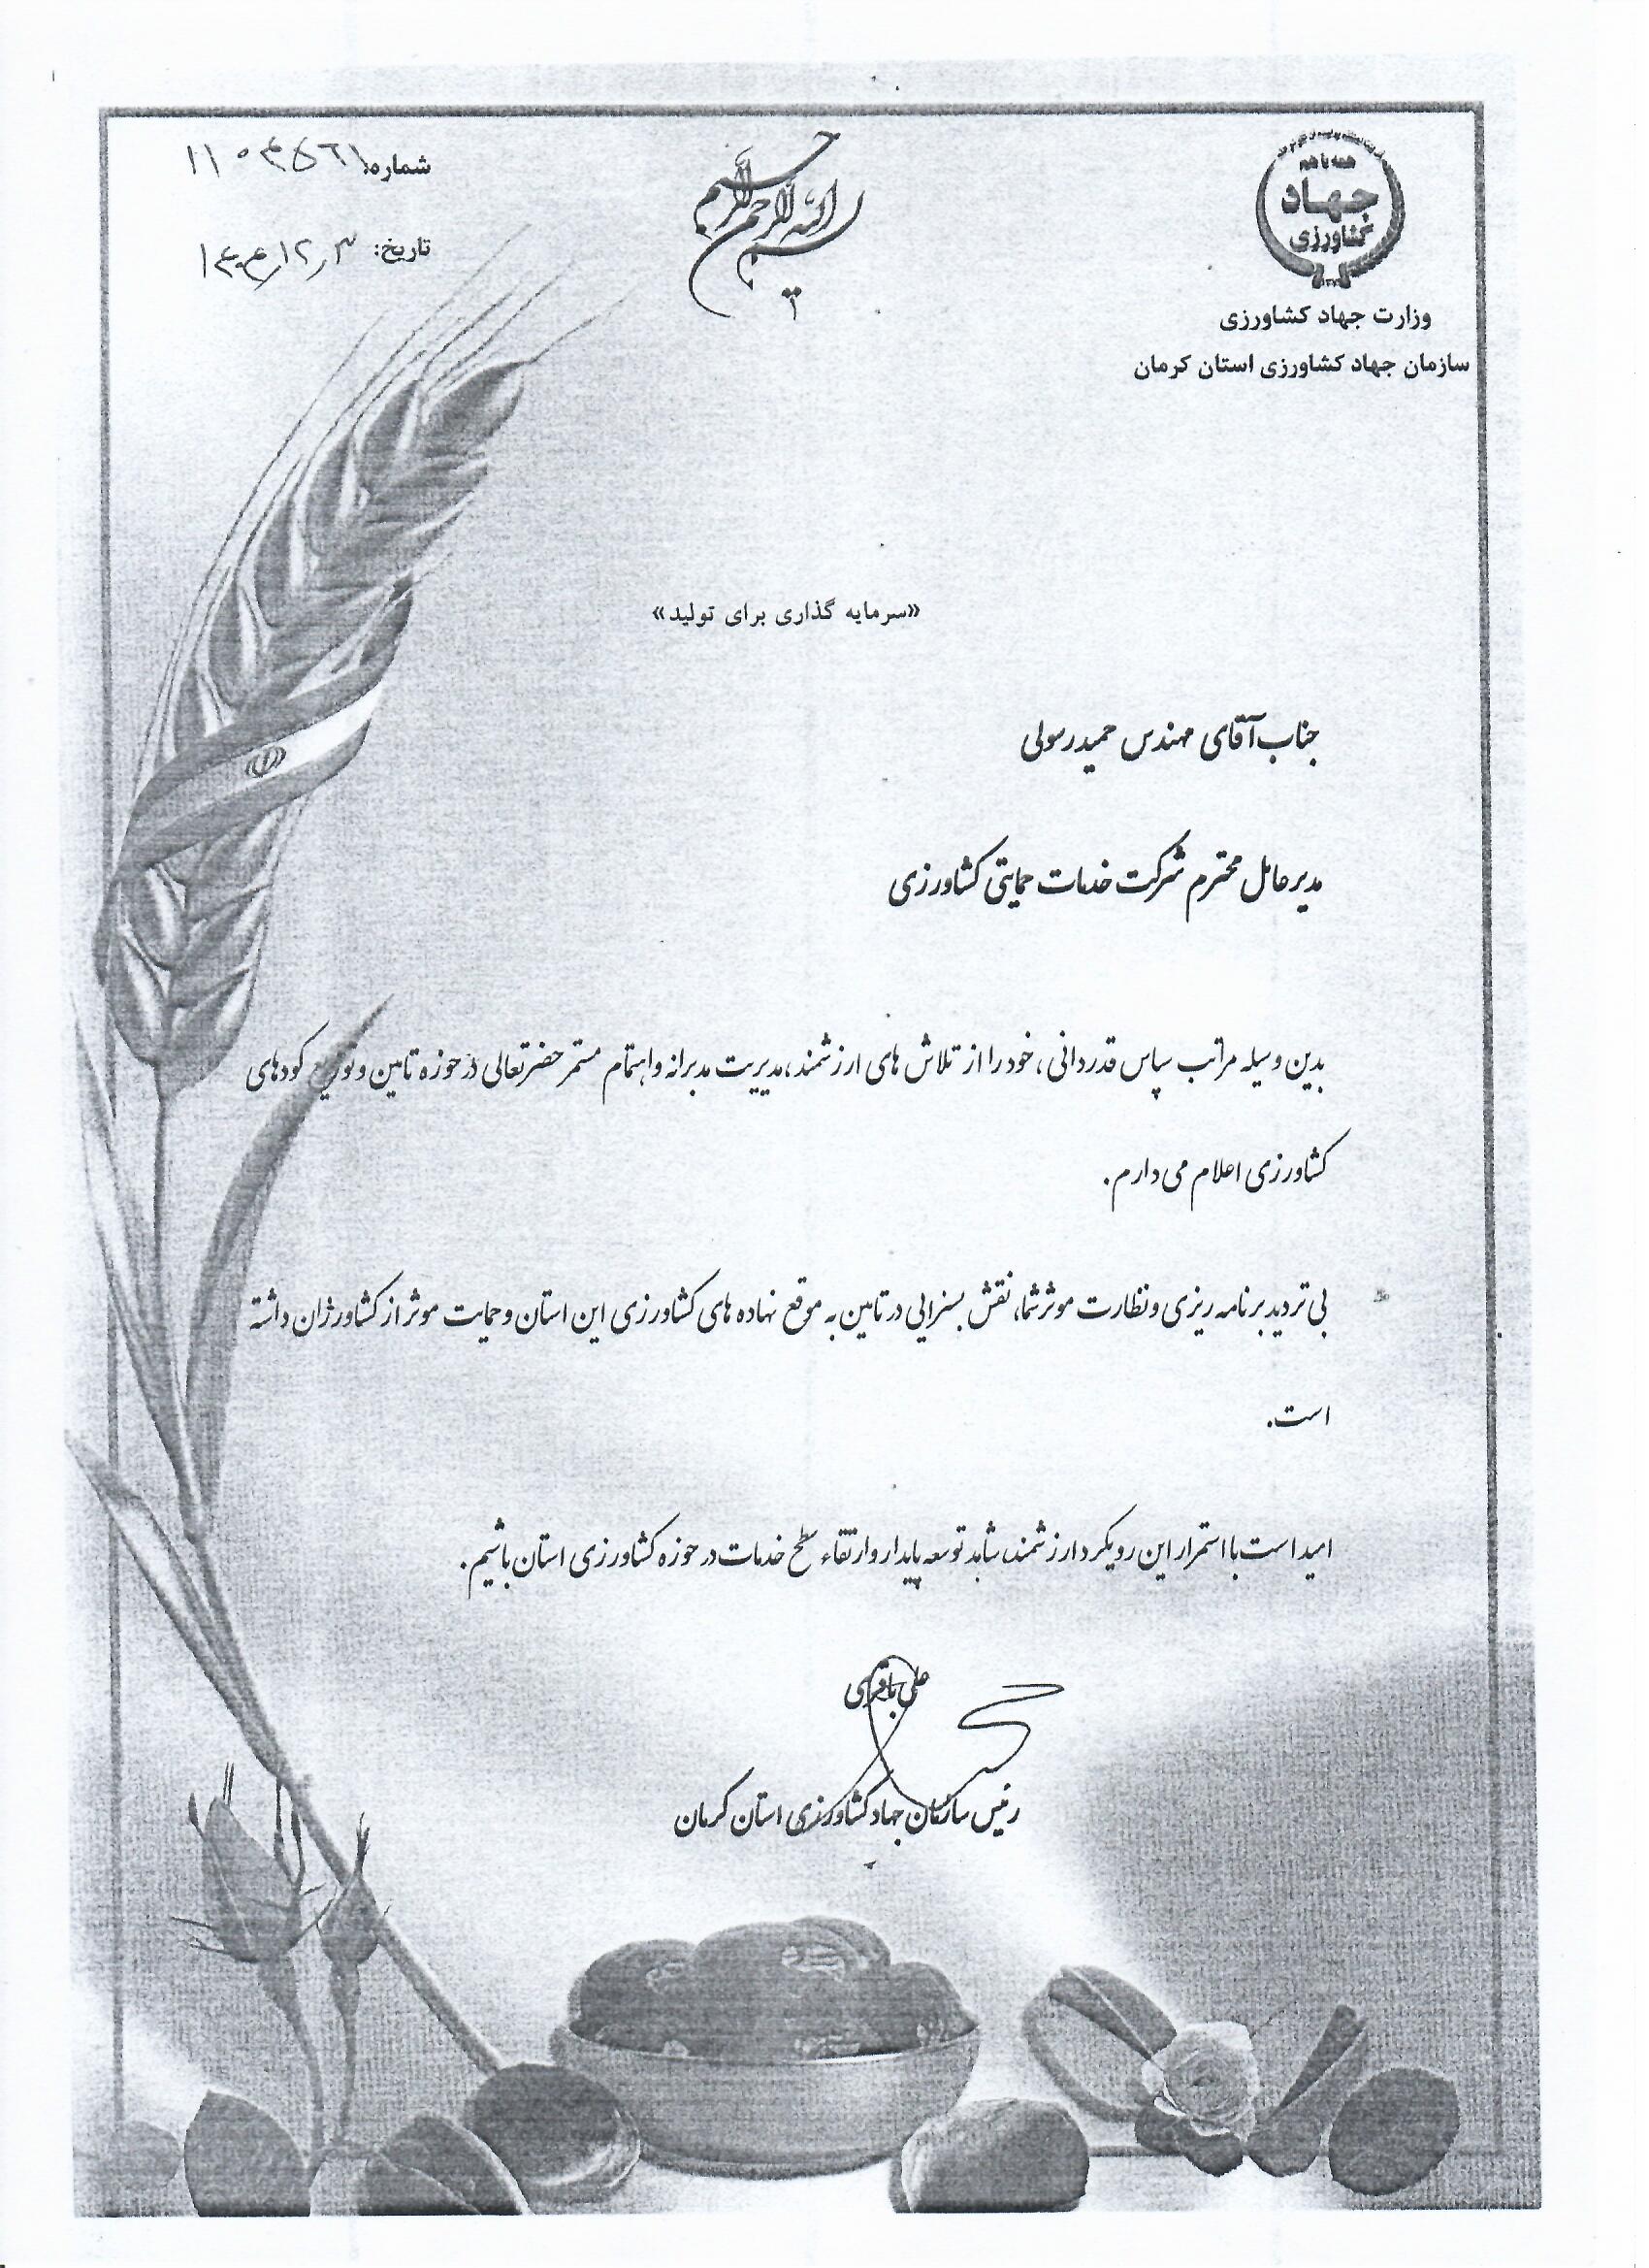 بسم الله الرحمن الرحیم
همه با هم
جهاد
کشاورزی
وزارت جهاد کشاورزی
سازمان جهاد کشاورزی استان کرمان
شماره:
تاریخ:
«سرمایه گذاری برای تولید»
جناب آقای مهندس حمید رسولی
مدیر عامل محترم شرکت خدمات حمایتی کشاورزی
بدین وسیله مراتب سپاس قدردانی، خود را از تلاش های ارزشمند، مدیریت مدبرانه و اهتمام مستمر حضرتعالی در حوزه تامین و توزیع کودهای
کشاورزی اعلام می دارم.
بی تردید برنامه ریزی و نظارت موثر شما، نقش بسزایی در تامین به موقع نهاده های کشاورزی این استان و حمایت موثر از کشاورزان داشته
است.
امید است با استمرار این رویکرد ارزشمند، شاهد توسعه پایدار و ارتقاء سطح خدمات در حوزه کشاورزی استان باشیم.
علی باقری
رئیس سازمان جهاد کشاورزی استان کرمان